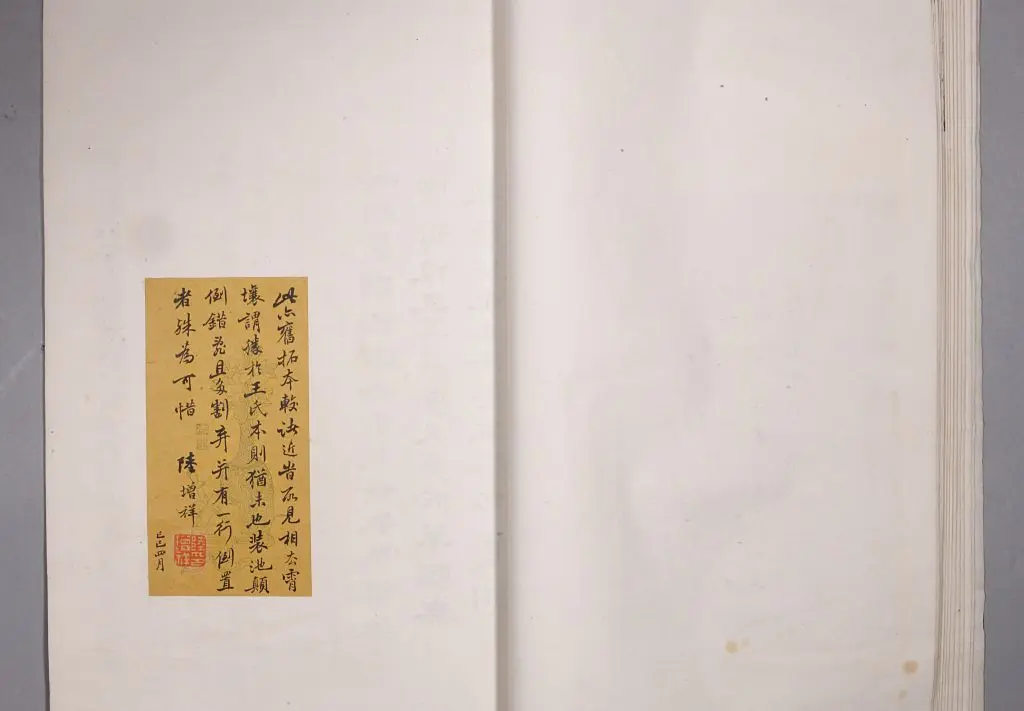 此亦舊拓本較諸近昔所見相去霄
壤謂勝於王氏本則猶未也裝池顛
倒錯亂且多割弃并有一行倒置
者殊為可惜 陸增祥
己巳四月